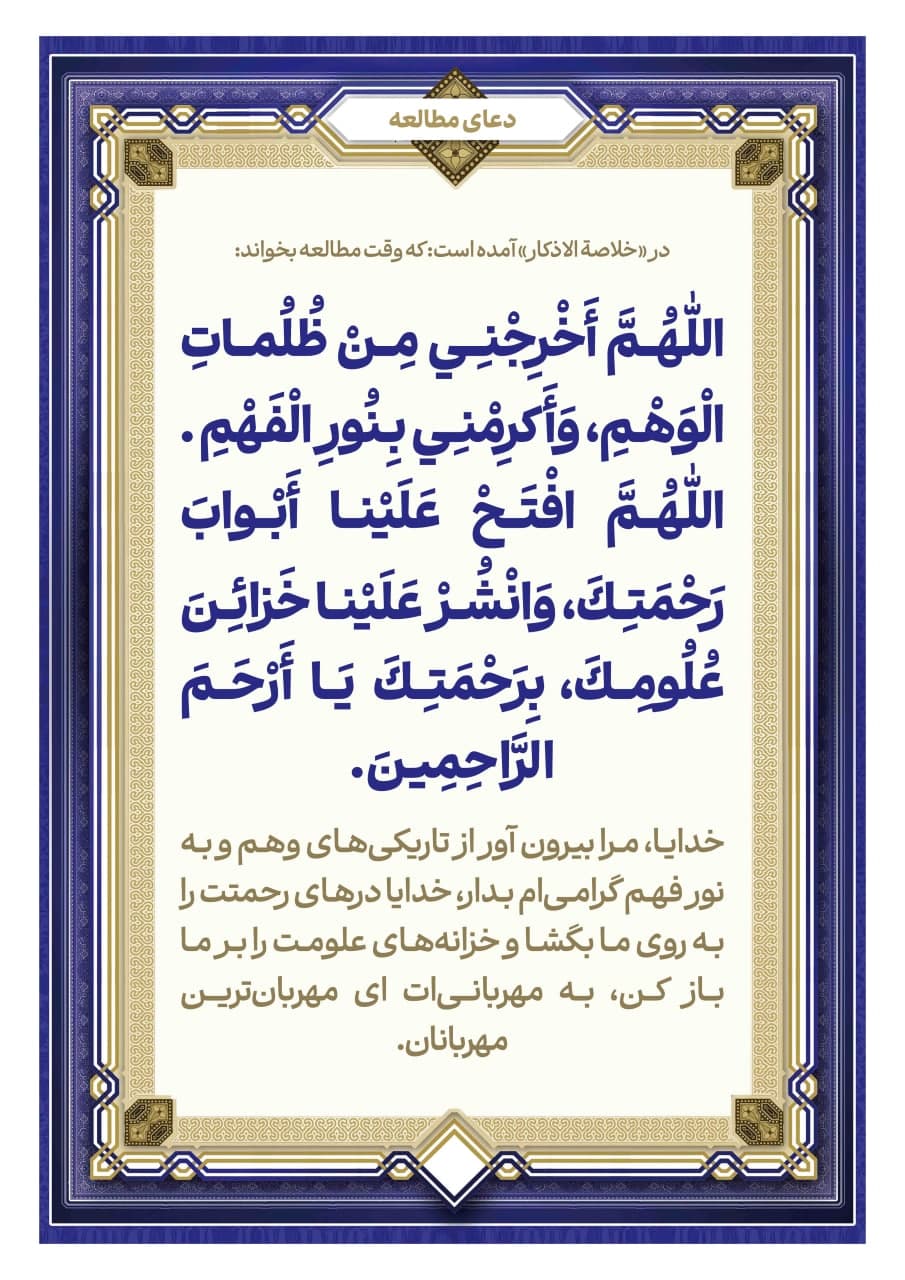 دعای مطالعه
در «خلاصة الاذکار» آمده است: که وقت مطالعه بخواند:
اللّٰهُمَّ أَخْرِجْنِي مِنْ ظُلُماتِ
الْوَهْمِ، وَأَكرِمْنِي بِنُورِ الْفَهْمِ.
اللّٰهُمَّ افْتَحْ عَلَيْنا أَبْوابَ
رَحْمَتِكَ، وَانْشُرْ عَلَيْنا خَزائِنَ
عُلُومِكَ، بِرَحْمَتِكَ يَا أَرْحَمَ
الرَّاحِمِينَ.
خدایا، مرا بیرون آور از تاریکی‌های وهم و به
نور فهم گرامی‌ام بدار، خدایا درهای رحمتت را
به روی ما بگشا و خزانه‌های علومت را بر ما
باز کن، به مهربانی‌ات ای مهربان‌ترین
مهربانان.